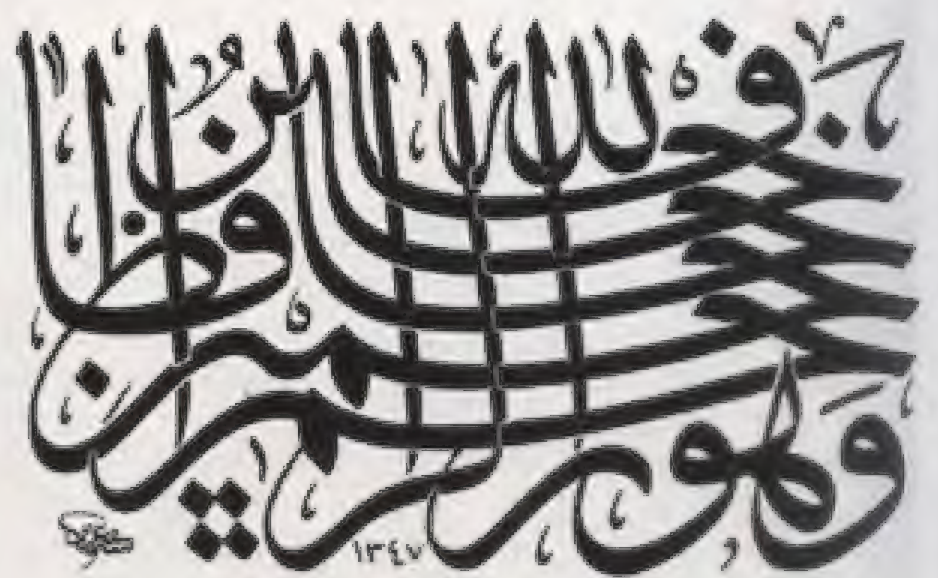 فالله خير حافظا وهو أرحم الراحمين
١٣٤٧